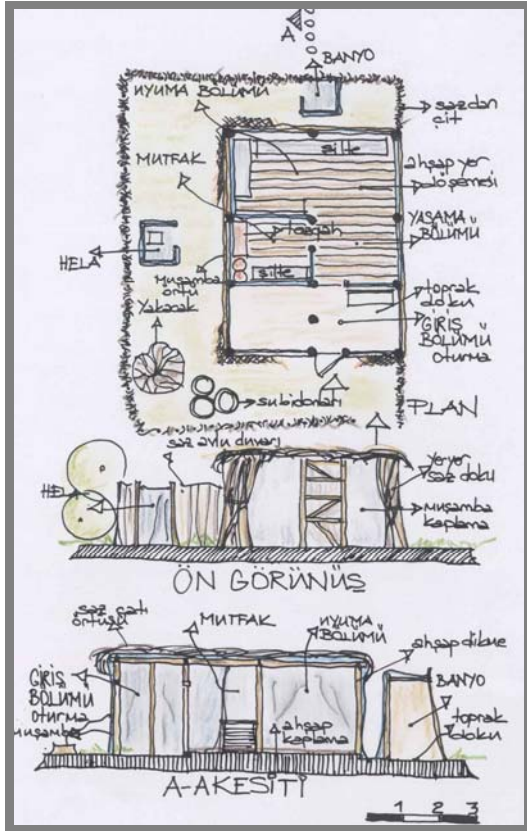 A
BANYO
UYUMA BÖLÜMÜ
sazdan
çit
şilte
MUTFAK
ahşap yer
döşemesi
tezgah
YAŞAMA
BÖLÜMÜ
HELA
muşamba
örtü
şilte
toprak
doku
Yakacak
GİRİŞ
BÖLÜMÜ
oturma
su bidonları
PLAN
saz avlu duvarı
yer yer
saz doku
HELA
muşamba
kaplama
ÖN GÖRÜNÜŞ
saz çatı
örtüsü
MUTFAK
UYUMA
BÖLÜMÜ
ahşap dikme
GİRİŞ
BÖLÜMÜ
oturma
muşamba
BANYO
ahşap
kaplama
toprak
doku
A-AKESİTİ
1 2 3